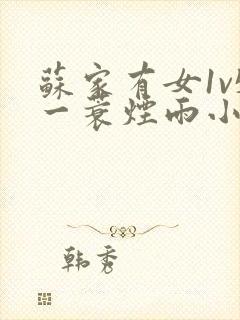 蘇家有女1v
一蓑煙雨小
韩秀